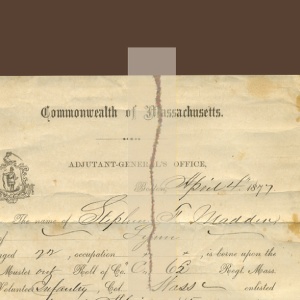 Commonwealth of Massachusetts.
ADJUTANT-GENERAL'S OFFICE,
Boston, April 4th 1877
The name of Stephen F. Madden
of Lynn
aged 22, occupation is borne upon the
Muster out Roll of Co. C. 62 Reg't Mass.
Volunteer Infantry Col Mass enlisted